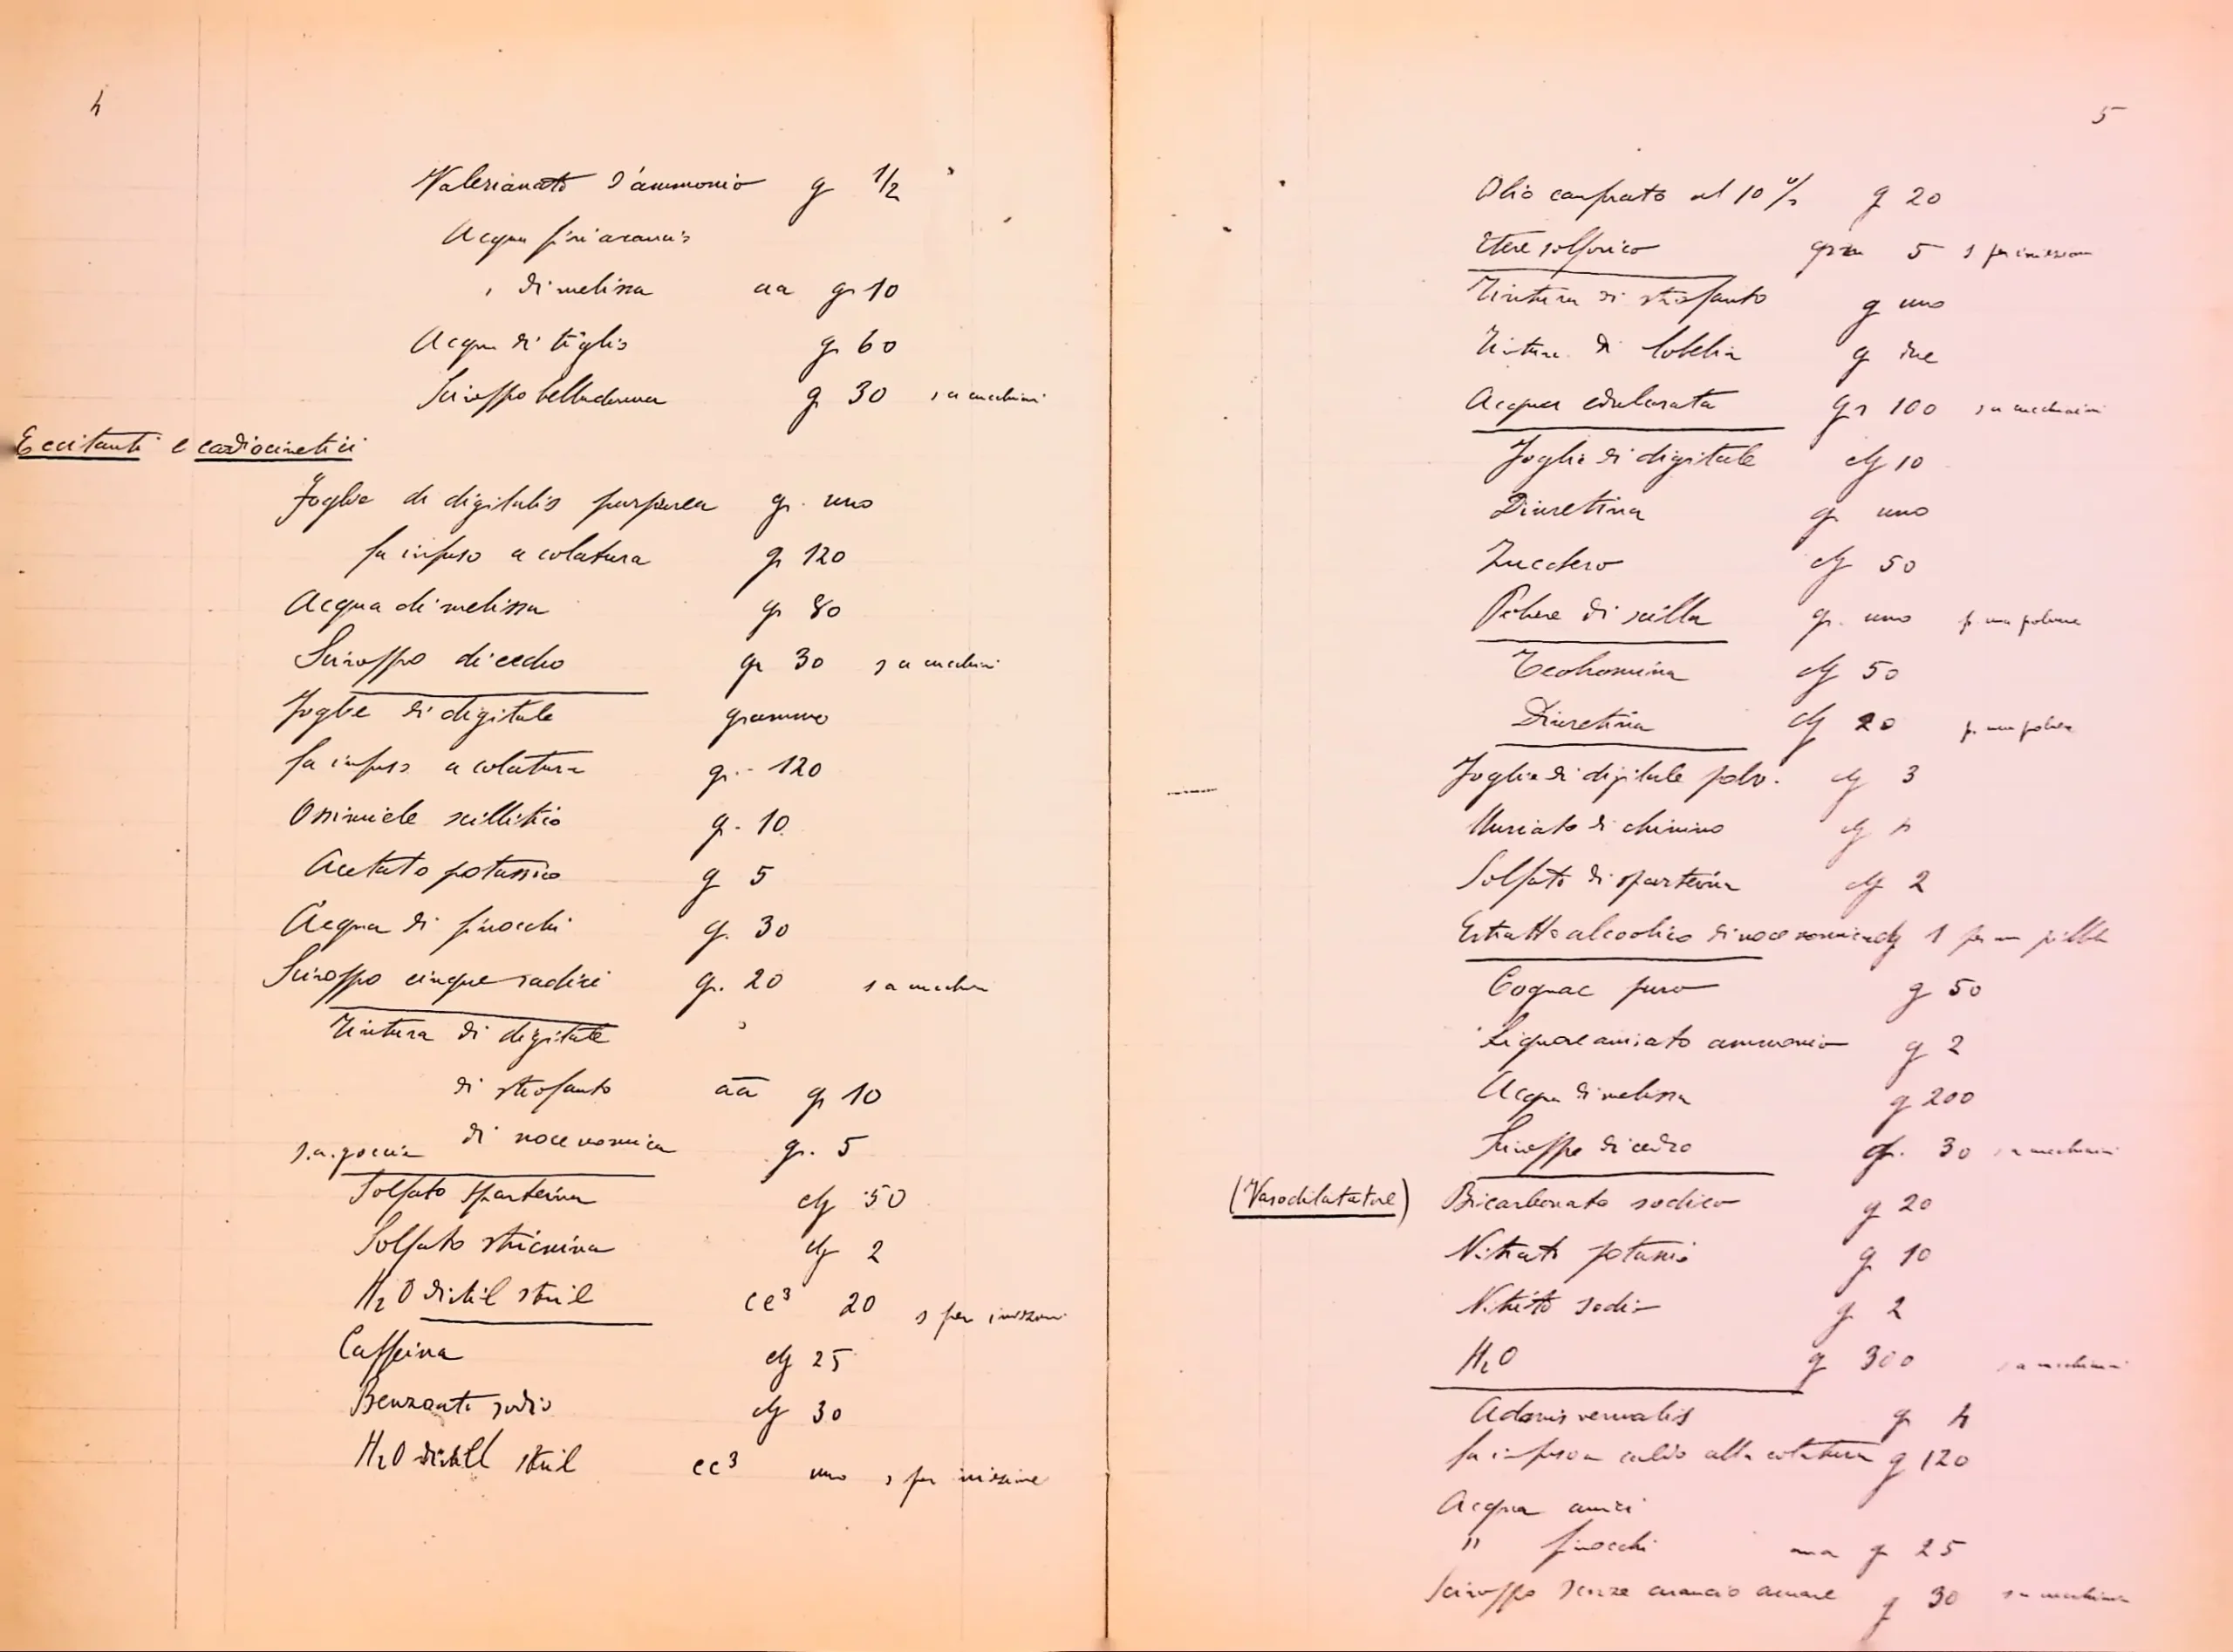 4
Valerianato d'ammonio g 1/2
Acqua fiori arancio
" di melissa aa gr 10
Acqua di tiglio gr 60
Sciroppo belladonna gr 30 s a cucchiai
Eccitanti e cardiocinetici
Foglie di digitalis purpurea gr. uno
fa infuso a colatura gr 120
Acqua di melissa gr 80
Sciroppo di cedro gr 30 s a cucchiai
Foglie di digitale grammo
fa infuso a colatura gr. - 120
Ossimiele scillitico gr - 10
Acetato potassico g 5
Acqua di finocchi g. 30
Sciroppo cinque radici gr. 20 s a cucchiai
Tintura di digitale
di strofanto aa gr 10
s.a. goccie di noce vomica gr. 5
Solfato sparteina cg 50
Solfato stricnina cg 2
H2O distil steril cc3 20 s per iniezioni
Caffeina cg 25
Benzoato sodio cg 30
H2O distill steril cc3 uno s per iniezione
5
Olio canforato al 10% g 20
Etere solforico gram 5 s per iniezioni
Tintura di strofanto g uno
Tintura di lobelia g due
Acqua edulcorata gr 100 s a cucchiaini
Foglie di digitale cg 10
Diuretina gr uno
Zucchero cg 50
Polvere di scilla gr. uno p. una polvere
Teobromina cg 50
Diuretina cg 20 p. una polvere
Foglie di digitale polv. cg 3
Muriato di chinino cg 4
Solfato di sparteina cg 2
Estratto alcoolico di noce vomica cg 1 per una pillola
Cognac puro g 50
Liquore anisato ammonio g 2
Acqua di melissa g 200
Sciroppo di cedro gr. 30 s a cucchiaini
(Vasodilatatore) Bicarbonato sodico g 20
Nitrato potassio g 10
Nitrito sodio g 2
H2O g 300 s a cucchiaini
Adonis vernalis gr 4
fa infuso a caldo alla colatura g 120
Acqua anici
" finocchi ana gr 25
Sciroppo scorze arancio amare g 30 s a cucchiaini